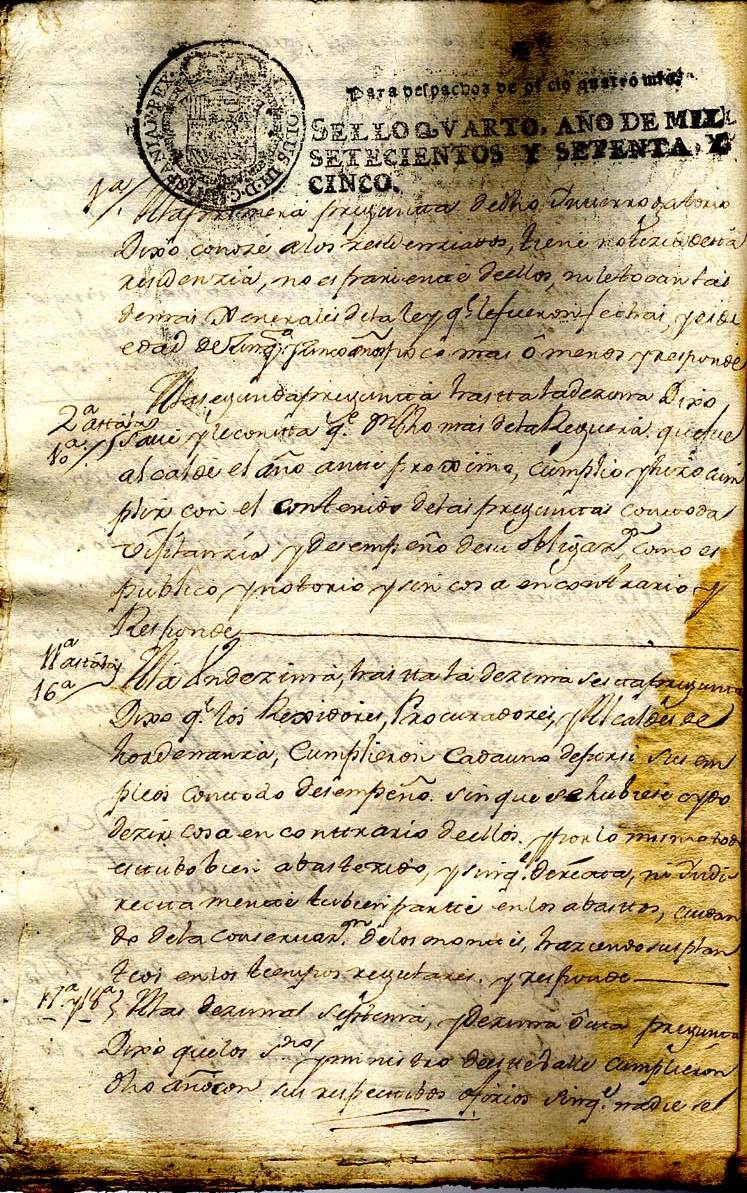 HISPANIAR. REX
CAROLUS III. D. G.
Para despachos de oficio quatro mrs.
SELLO QVARTO, AÑO DE MIL
SETECIENTOS Y SETENTA Y
CINCO.
1ª/. A la primera pregunta de dho Ynterrogatorio
Dixo conoze a los residenziados, tiene notizia de esta
residenzia, no es pariente de ellos, ni le tocan las
demas Generales de la ley q.e le fueron fechas, y es de
edad de Zinq.ta y Zinco años poco mas ô menos y responde
A la segunda pregunta hastta la dezima Dixo
2ª astta la
10ª./ Save y le constta q.e
mas de la Reguera que fue
alcalde el año antte proximo, cumplio y hizo cum
plir con el contenido de las preguntas con toda
vijilanzia y desempeño de su obligaz.n como es
publico y notorio y sin cosa en contrario y
Responde
11ª astta la
16ª A la Undezima, hastta la dezima sestta pregunta
Dixo q.e los Rexidores, Procuradores, y Alcaldes de
hordenanzia, cumplieron cada uno de por si sus em
pleos con todo desempeño. sin que se hubiese oydo
dezir cosa en conttrario de ellos. y por lo mismo todo
esttubo bien abastezido, y sin q.e
directa, ni Yndi
recttamentte tubiesen partte en los abasttos, cuidan
do de la conservaz.n de los monttes, haziendo sus plan
ttios en los ttiempos regulares. y responde
17ª y 18ª} A las dezimas septtima, y dezima octtava pregunta
Dixo que los
y ministro de estte valle cumplieron
dho año con sus respectibos ofizios sin q.e nadie se